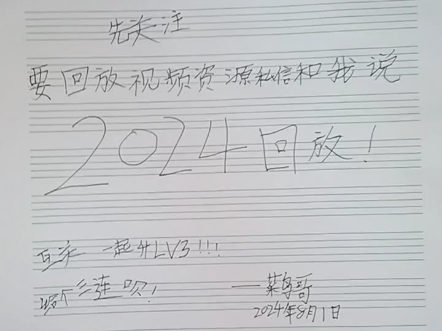 先关注
要回放视频资源私信和我说
2024回放!
互关 一起升LV3!!!
给个三连呗!
——菜鸟哥
2024年8月1日